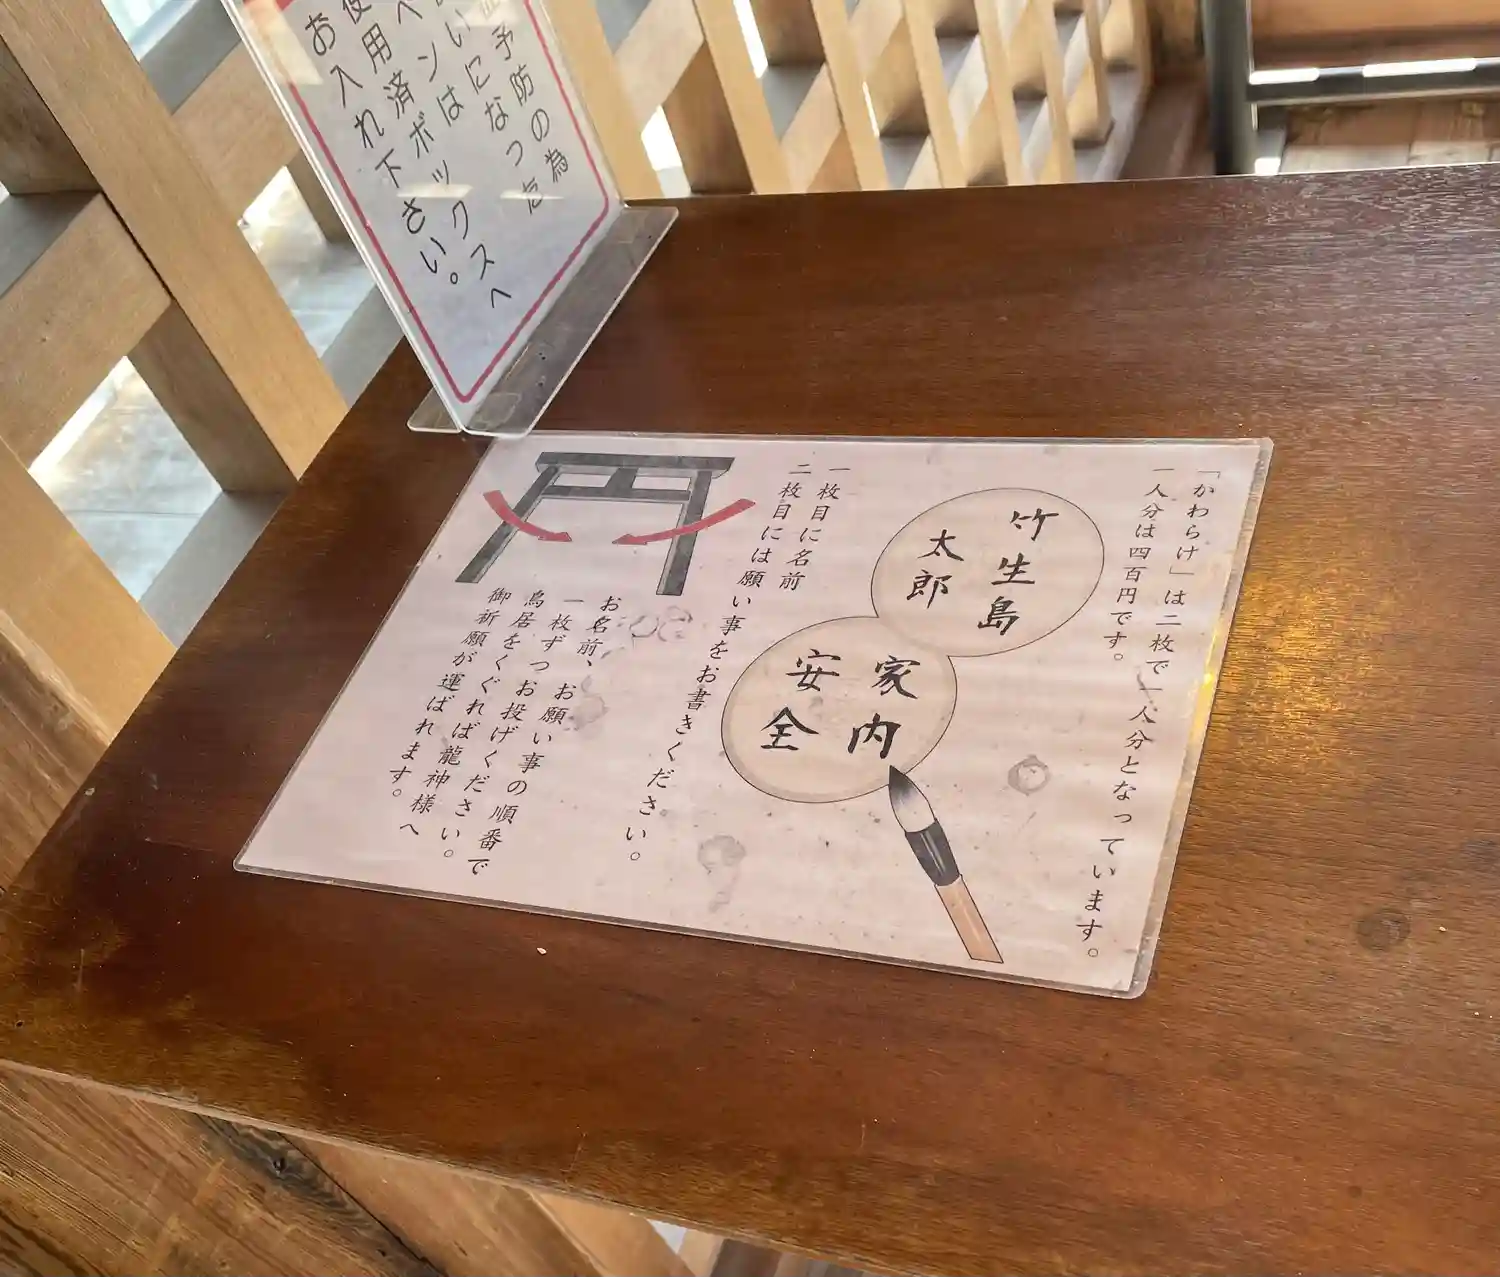 予防の為
いになった
ンは
使用済ボックスへ
お入れ下さい。
「かわらけ」は二枚で一人分となっています。
一人分は四百円です。
竹生島
太郎
家内
安全
一枚目に名前
二枚目には願い事をお書きください。
お名前、お願い事の順番で
一枚ずつお投げください。
鳥居をくぐれば龍神様へ
御祈願が運ばれます。